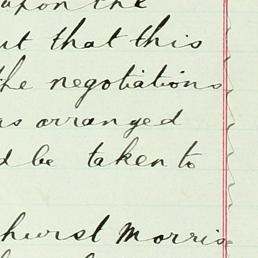 upon the
ut that this
the negotiations
as arranged
d be taken to
hurst Morris